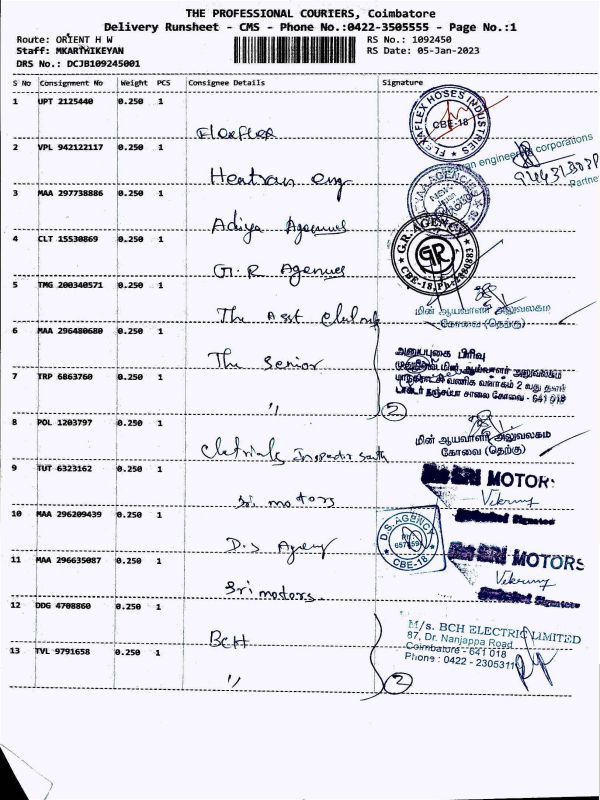 THE PROFESSIONAL COURIERS, Coimbatore
Delivery Runsheet - CMS - Phone No.:0422-3505555 - Page No.:1
Route: ORIENT H W RS No.: 1092450
Staff: MKARTHIKEYAN RS Date: 05-Jan-2023
DRS No.: DCJB109245001
S No Consignment No Weight PCS Consignee Details Signature
1 UPT 2125440 0.250 1
Flexflex
FLEXAFLEX HOSES INDUSTRIES CBE-18
2 VPL 942122117 0.250 1
Heatran eng
engineering corporations
Partner
3 MAA 297738886 0.250 1
Adiya Agencies
4 CLT 15530869 0.250 1
G.R Agencies
G.R. AGENCY GR CBE-18.
5 TMG 200340571 0.250 1
The Asst
மின் ஆய்வாளர் அலுவலகம்
கோவை (தெற்கு)
6 MAA 296480680 0.250 1
The Senior
அனுப்புகை பிரிவு
மின் ஆய்வாளர் அலுவலகம்
வணிக வளாகம் 2 வது தளம்
டாக்டர் நஞ்சப்பா சாலை கோவை - 641 018
7 TRP 6863760 0.250 1
" 2
8 POL 1203797 0.250 1
Inspector South
மின் ஆய்வாளர் அலுவலகம்
கோவை (தெற்கு)
9 TUT 6323162 0.250 1
Sri motors
SRI MOTORS
10 MAA 296209439 0.250 1
D.S Agency
D.S. AGENCY CBE-18
11 MAA 296635087 0.250 1
Sri motors
SRI MOTORS
12 DDG 4708860 0.250 1
BCH
M/s. BCH ELECTRIC LIMITED
87, Dr. Nanjappa Road
Coimbatore - 641 018
Phone : 0422 - 2305311
13 TVL 9791658 0.250 1
" 2